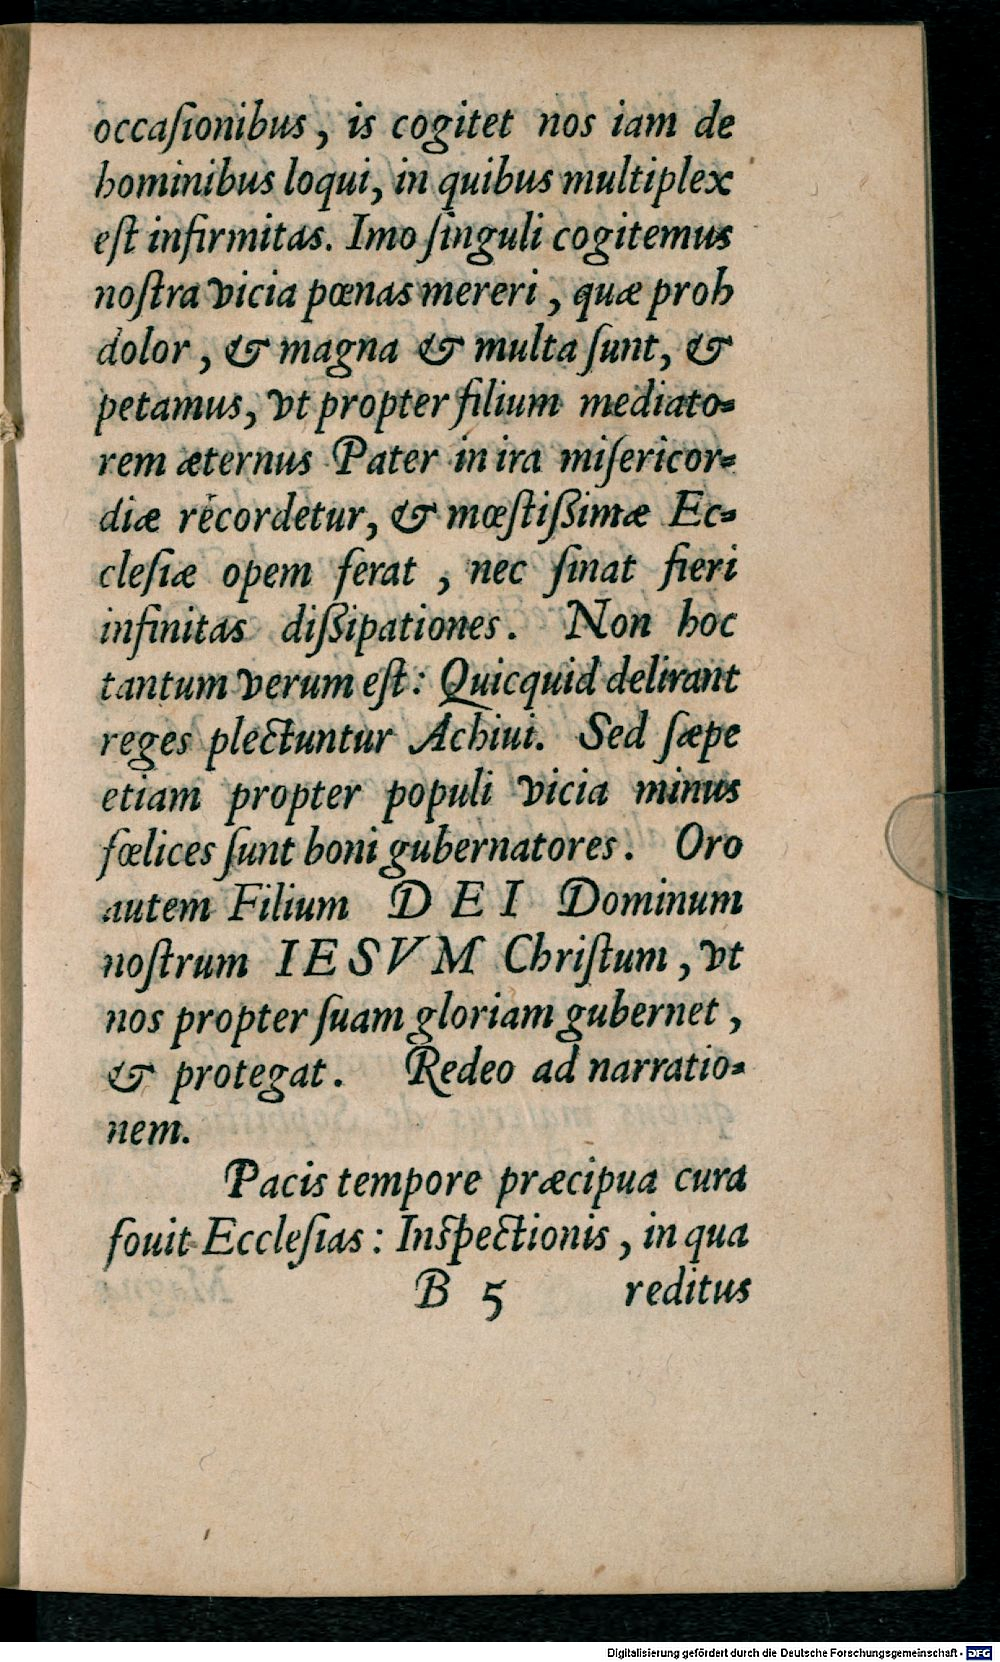 occaſionibus, is cogitet nos iam de
hominibus loqui, in quibus multiplex
eſt infirmitas. Imo ſinguli cogitemus
noſtra vicia pœnas mereri, quæ proh
dolor, & magna & multa ſunt, &
petamus, vt propter filium mediato-
rem æternus Pater in ira miſericor-
diæ recordetur, & mœſtiſsimæ Ec-
cleſiæ opem ferat, nec ſinat fieri
infinitas diſsipationes. Non hoc
tantum verum eſt: Quicquid delirant
reges plectuntur Achiui. Sed ſæpe
etiam propter populi vicia minus
fœlices ſunt boni gubernatores. Oro
autem Filium DEI Dominum
noſtrum IESVM Chriſtum, vt
nos propter ſuam gloriam gubernet,
& protegat. Redeo ad narratio-
nem.
Pacis tempore præcipua cura
fouit Eccleſias: Inſpectionis, in qua
B 5 reditus
Digitalisierung gefördert durch die Deutsche Forschungsgemeinschaft - DFG